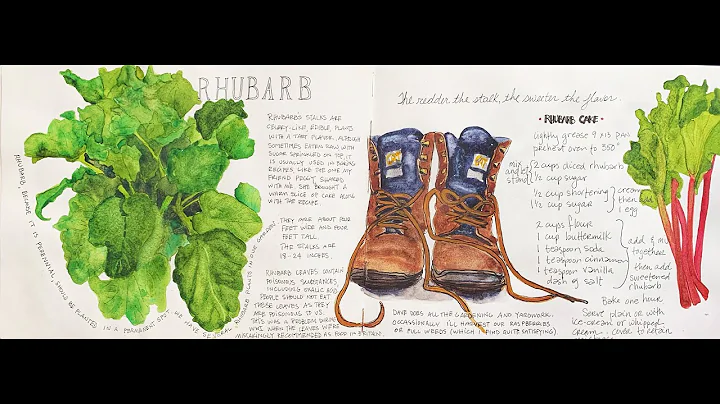 RHUBARB
RHUBARB'S STALKS ARE
CELERY-LIKE, EDIBLE, PLANTS
WITH A TART FLAVOR. ALTHOUGH
SOMETIMES EATEN RAW WITH
SUGAR SPRINKLED ON TOP, IT
IS USUALLY USED IN BAKING
RECIPES LIKE THE ONE MY
FRIEND PEGGY SHARED
WITH ME. SHE BROUGHT A
WARM SLICE OF CAKE ALONG
WITH THE RECIPE.
THEY ARE ABOUT FOUR
FEET WIDE AND FOUR
FEET TALL.
THE STALKS ARE
18-24 INCHES.
RHUBARB LEAVES CONTAIN
POISONOUS SUBSTANCES,
INCLUDING OXALIC ACID.
PEOPLE SHOULD NOT EAT
THESE LEAVES AS THEY
ARE POISONOUS TO US.
THIS WAS A PROBLEM DURING
WWI WHEN THE LEAVES WERE
MISTAKENLY RECOMMENDED AS FOOD IN BRITAIN.
RHUBARB, BECAUSE IT IS PERENNIAL, SHOULD BE PLANTED IN A PERMANENT SPOT. WE HAVE SEVERAL RHUBARB PLANTS IN OUR GARDEN.
The redder the stalk, the sweeter the flavor.
• RHUBARB CAKE •
Lightly grease 9 x 13 pan
preheat oven to 350°
mix and let stand
2 cups diced rhubarb
1/2 cup sugar
1/2 cup shortening
1 1/2 cup sugar
cream then add 1 egg
2 cups flour
1 cup buttermilk
1 teaspoon soda
1 teaspoon cinnamon
1 teaspoon vanilla
dash of salt
add & mix together then add sweetened rhubarb
Bake one hour
Serve plain or with
ice-cream or whipped
cream. Cover to retain
DAVE DOES ALL THE GARDENING AND YARDWORK.
OCCASIONALLY I'LL HARVEST OUR RASPBERRIES
OR PULL WEEDS (WHICH I FIND QUITE SATISFYING).